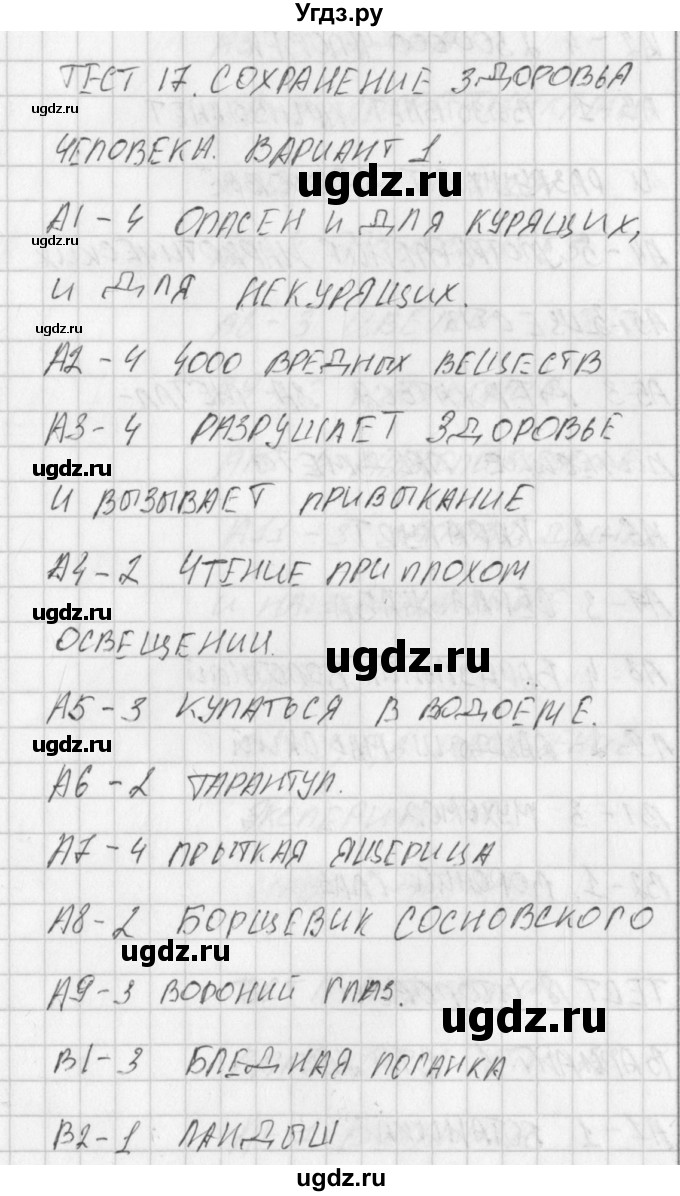 Угдз.ру
ТЕСТ 17. СОХРАНЕНИЕ ЗДОРОВЬА
ugdz.ru
ЧЕЛОВЕКА. ВАРИАНТ 1.
ugdz.ru
А1-4 ОПАСЕН И ДЛЯ КУРЯЩИХ,
ugdz.ru
И ДЛЯ НЕКУРЯЩИХ.
ugdz.ru
А2-4 4000 ВРЕДНЫХ ВЕЩЕСТВ
А3-4 РАЗРУШАЕТ ЗДОРОВЬЕ
ugdz.ru
И ВЫЗЫВАЕТ ПРИВЫКАНИЕ
А4-2 ЧТЕНИЕ ПРИ ПЛОХОМ
ugdz.ru
ОСВЕЩЕНИИ.
ugdz.ru
А5-3 КУПАТЬСЯ В ВОДОЁМЕ.
ugdz.ru
А6-2 ТАРАНТУЛ.
А7-4 ПРЫТКАЯ ЯЩЕРИЦА
А8-2 БОРЩЕВИК СОСНОВСКОГО
ugdz.ru
А9-3 ВОРОНИЙ ГЛАЗ.
ugdz.ru
В1-3 БЛЕДНАЯ ПОГАНКА
В2-1 ЛАНДЫШ
ugdz.ru